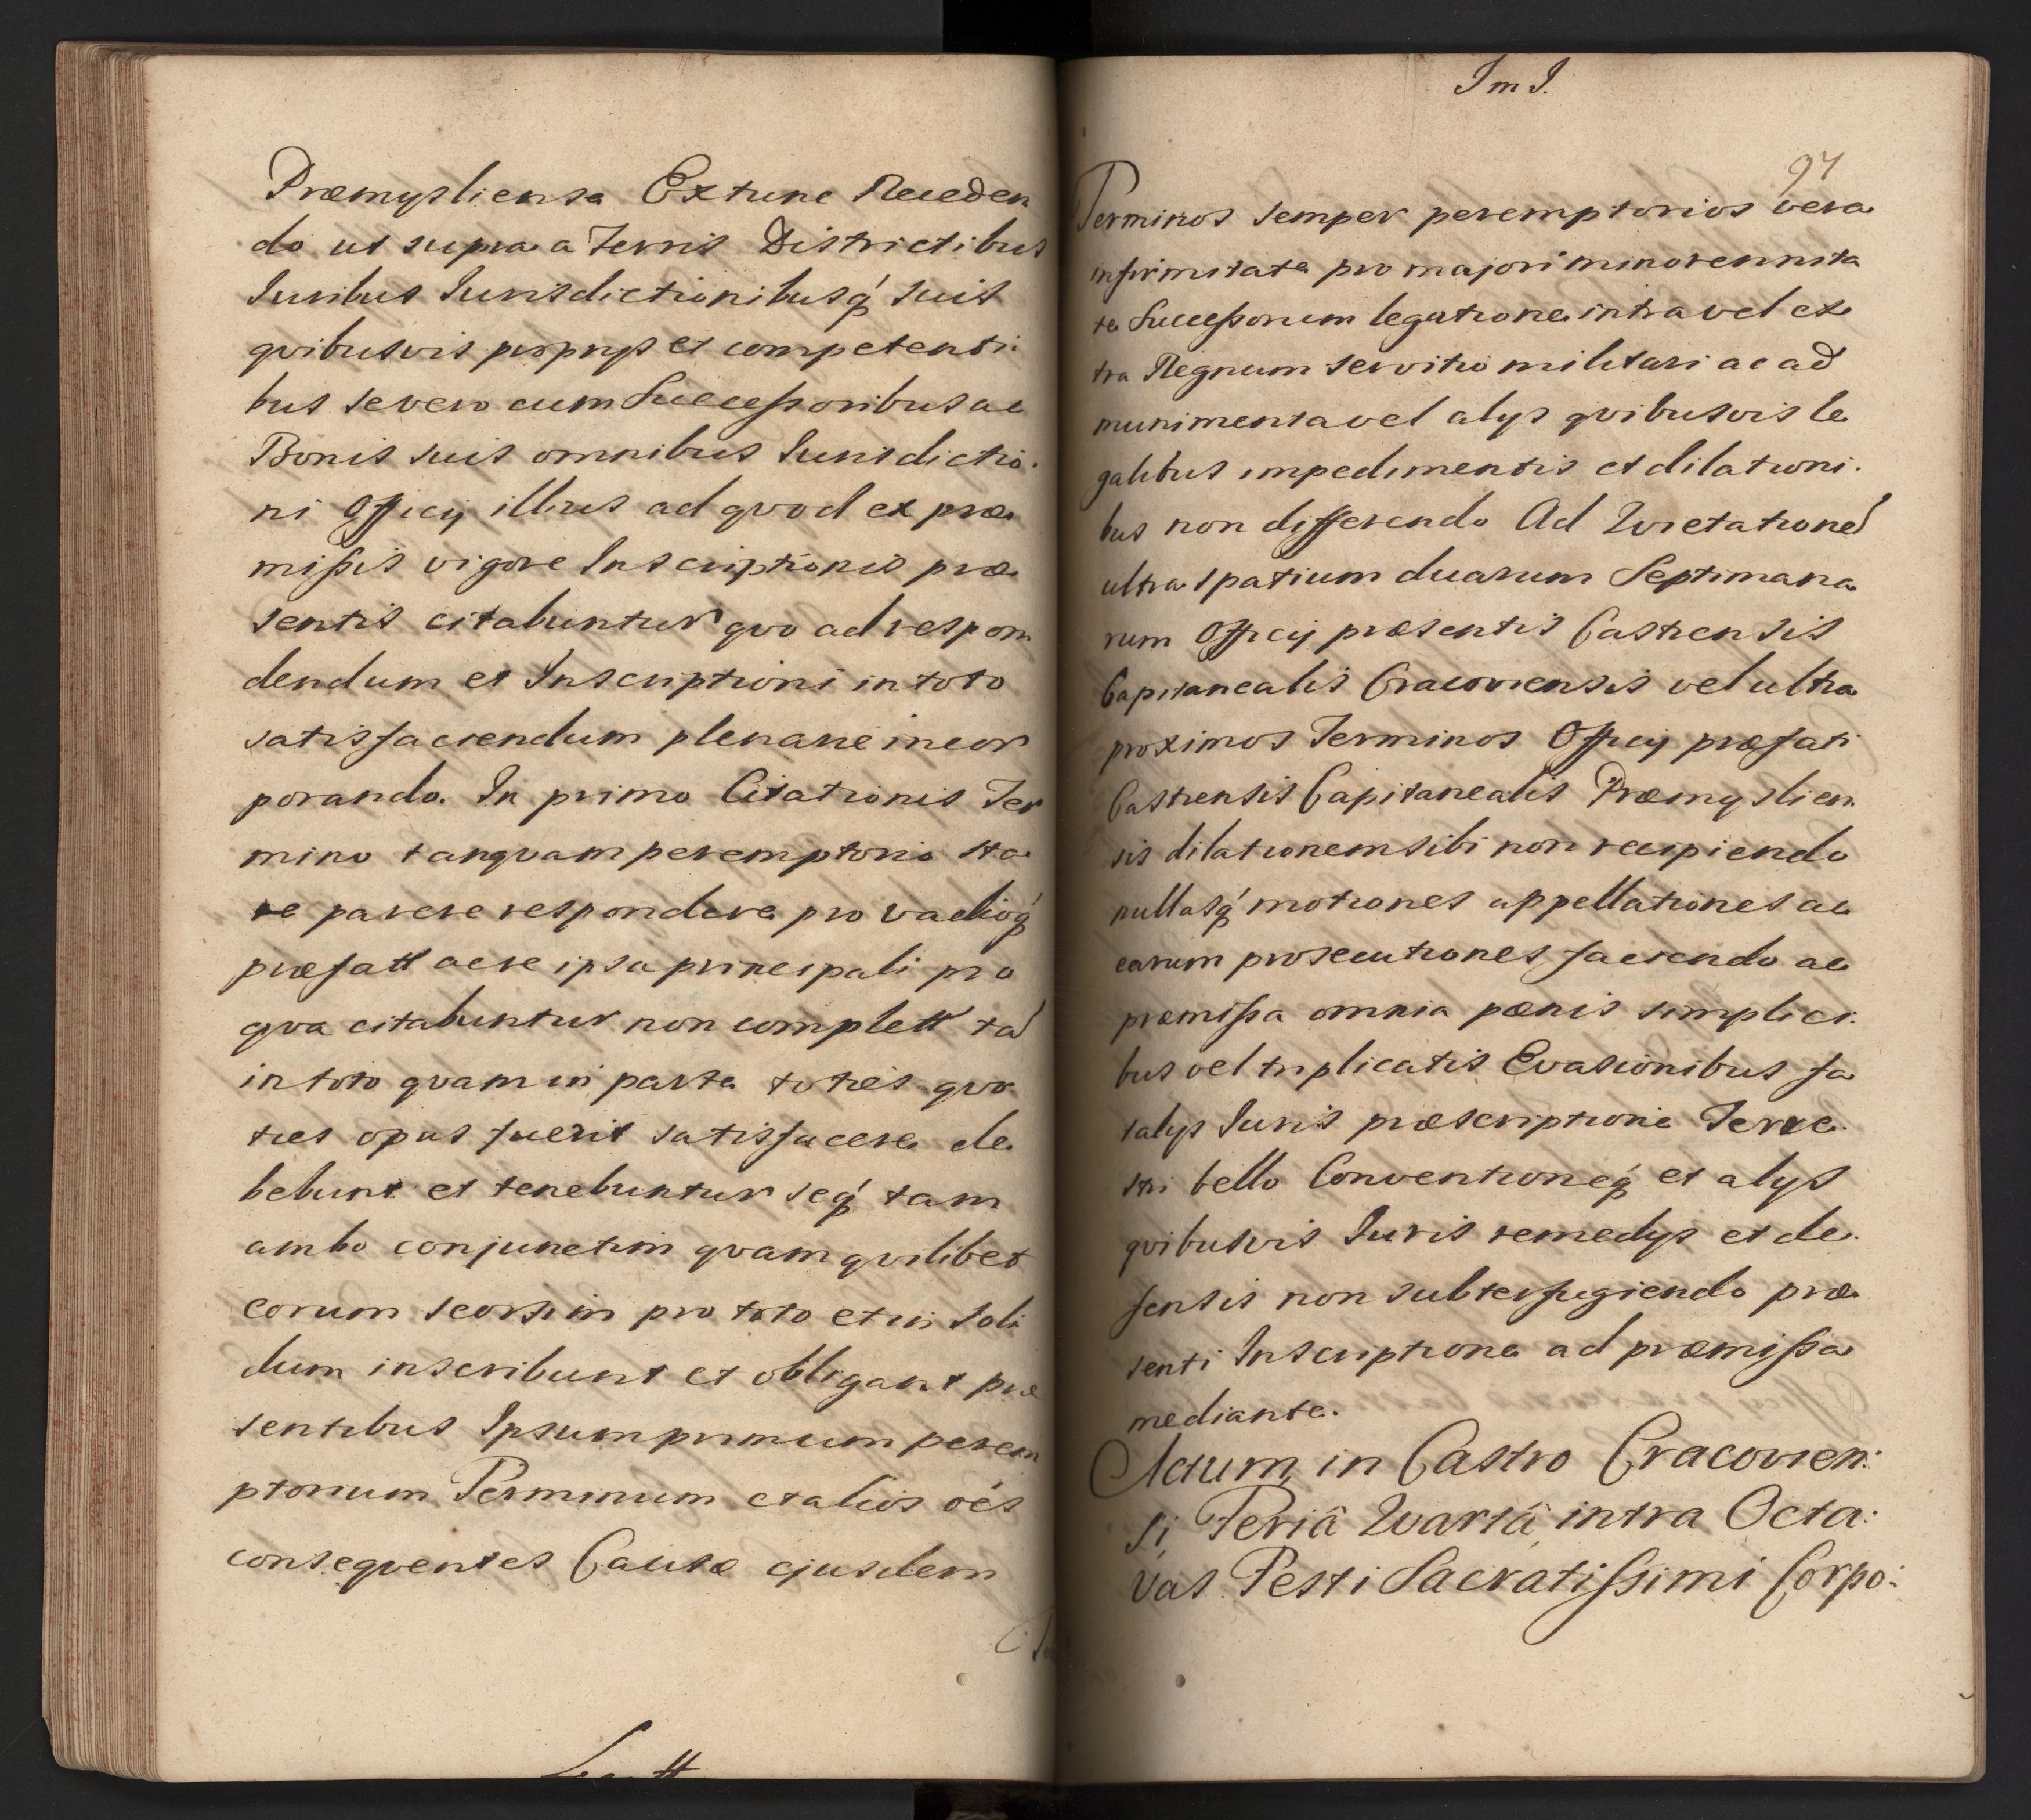 Præmysliense Extunc Receden
do ut supra a Terris Districtibus
Iuribus Iurisdictionibusq́ suis
qvibusvis proprys et competenti.
bus se vero cum Succeßoribus ac
Bonis suis omnibus Iurisdictio.
ni Officij illius ad qvod ex præ
mißis vigore Inscriptionis præ
sentis citabuntur qvo ad respon
dendum et Inscriptioni in toto
satisfaciendum plenarie incor
porando. In primo Citationis Ter
mino tanqvam peremptorio sta
re parere respondere pro vadioq́
præfatt aere ipsa principali pro
qva citabuntur non complett tã
in toto qvam in parte toties qvo
ties opus fuerit satisfacere de
bebunt et tenebuntur seq́ tam
ambo conjunctim qvam qvilibet
eorum seorsim pro toto et in soli
dum inscribunt et obligant præ
sentibus Ipsum primum perem
ptorium Terminum et alios oẽs
conseqventes Causæ ejusdem
Im I.
97
Terminos semper peremptorios vera
infirmitate pro majori minorennita
te Succeßorum legatione intra vel ex
tra Regnum servitio militari ac ad
munimenta vel alys qvibusvis le
galibus impedimentis et dilationi.
bus non differendo Ad Qvietationẽ
ultra spatium duarum Septimana
rum Officij præsentis Castrensis
Capitanealis Cracoviensis vel ultra
proximos Terminos Officij præfati
Castrensis Capitanealis Præmyslien
sis dilationem sibi non recipiendo
nullasq́ motiones appellationes ac
earum prosecutiones faciendo ac
præmißa omnia pænis simplici.
bus vel triplicatis Evasionibus fa
talys Iuris præscriptione Terre.
stri bello Conventioneq́ et alys
qvibusvis Iuris remedys et de.
fensis non subterfugiendo præ
senti Inscriptione ad præmißa
mediante.
Actum in Castro Cracovien:
si, Feriâ Qvartâ intra Octa:
vas Festi Sacratißimi Corpo: